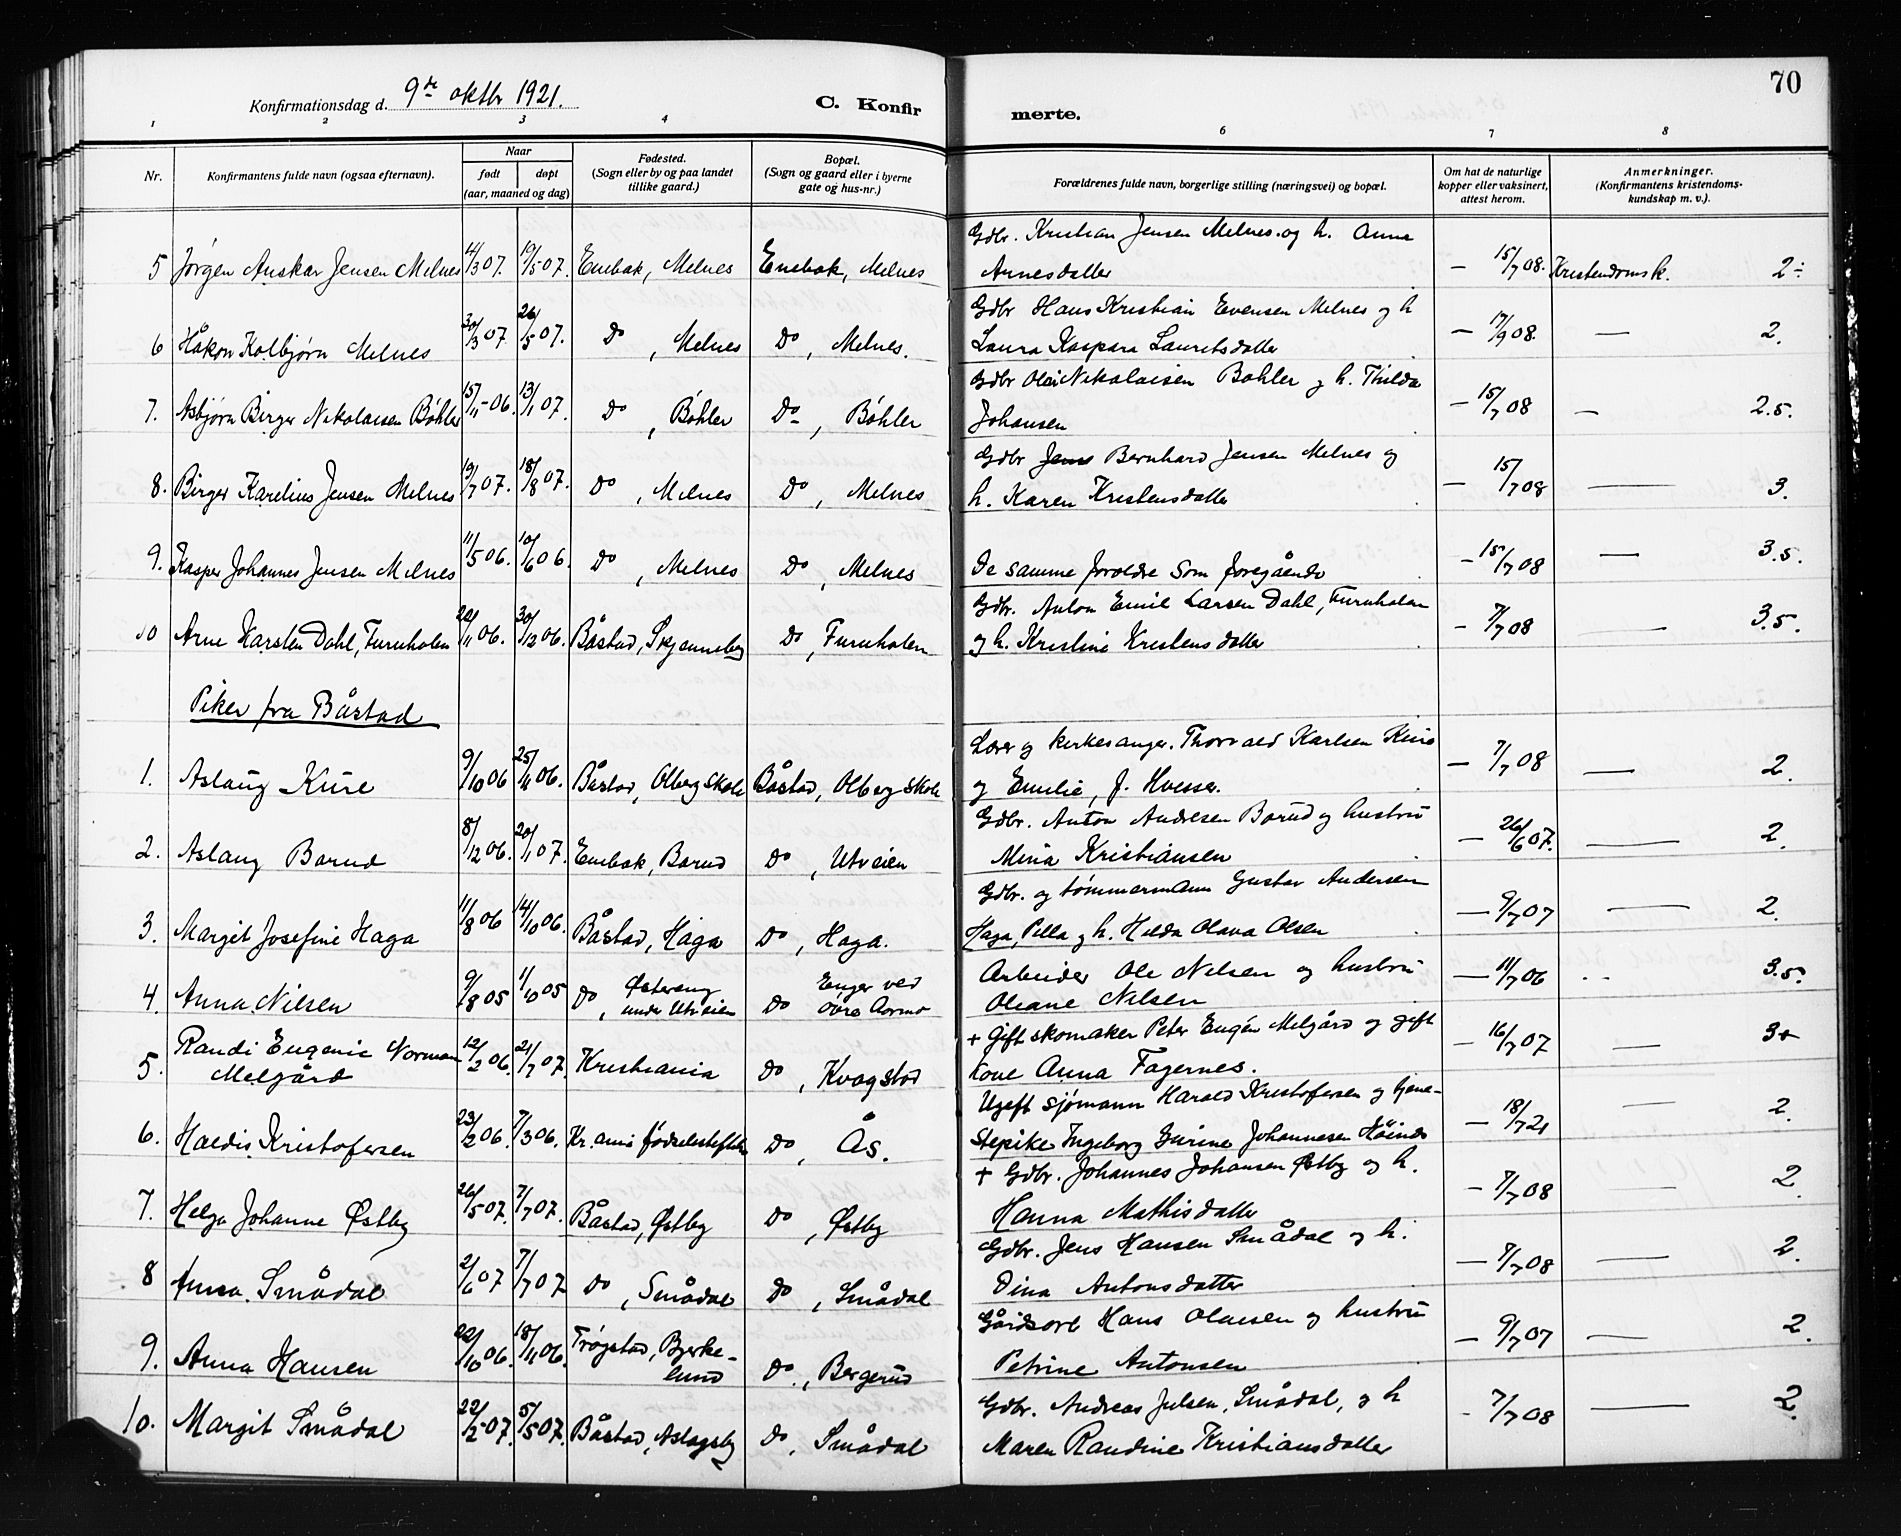 70
Konfirmationsdag d. 9de oktbr 1921.
C. Konfirmerte.
1 2 3 4 6 7 8
Nr.
Konfirmantens fulde navn (ogsaa efternavn).
Naar
født døpt
(aar, maaned og dag)
Fødested.
(Sogn eller by og paa landet
tillike gaard.)
Bopæl.
(Sogn og gaard eller i byerne
gate og hus-nr.)
Forældrenes fulde navn, borgerlige stilling (næringsvei) og bopæl.
Om hat de naturlige
kopper eller vaksinert,
attest herom.
Anmerkninger.
(Konfirmantens kristendoms-
kundskap m. v.).
Gdbr. Kristian Jensen Melnes. og h. Anna
5 Jørgen Anskar Jensen Melnes 4/3 07. 19/5 07. Enebak, Melnes Enebak, Melnes Arnesdatter — 15/7 08. Kristendomsk. 2÷
Gdbr Hans Kristian Evensen Melnes og h
6 Håkon Kolbjørn Melnes 30/3 07 26/5 07. Do, Melnes Do, Melnes. Laura Kaspara Lauritsdatter — 17/9 08. — 2.
Gdbr Olai Nikolaisen Bøhler og h. Thilda
7. Asbjørn Birger Nikolaisen Bøhler 15/11-06. 13/1 07. Do, Bøhler Do-, Bøhler Johansen — 15/7 08 — 2.5.
Gdbr Jens Bernhard Jensen Melnes og
8. Birger Karelius Jensen Melnes 19/7 07. 18/8 07. Do, Melnes Do, Melnes h. Karen Kristensdatter — 15/7 08 — 3.
9. Kasper Johannes Jensen Melnes 11/5 06. 10/6 06. Do, Melnes Do, Melnes De samme foreldre som foregående — 15/7 08 — 3.5.
Gdbr. Anton Emil Larsen Dahl, Furuholen
10 Arne Karsten Dahl, Furuholen 22/11 06. 30/12 06. Båstad, Skjenneberg Do, Furuholen og h. Kristine Kristensdatter — 7/7 08 — 3.5.
Piker fra Båstad
Lærer og kirkesanger. Thorvald Karlsen Kure
1. Aslaug Kure 9/10 06 25/11 06. Båstad, Olberg skole Båstad, Olberg skole og Emilie, f. Huesser. — 7/7 08 — 2.
Gdbr. Anton Andresen Borud og hustru
2. Aslaug Borud 8/12 06. 20/1 07. Enebak, Borud Do, Utveien Mina Kristiansen — 26/6 07. — 2.
Gdbr. og tømmermann Gustav Andersen
3. Margit Josefine Haga 11/8 06 14/10 06. Båstad, Haga Do, Haga. Haga, Pella og h. Hilda Olava Olsen — 9/7 07 — 2.
Arbeider Ole Nilsen og hustru
4. Anna Nilsen 9/8 05 1/10 05 Do, Østereng under Utveien Do Enger ved øvre Aarmo Oleane Nilsen — 11/7 06 - - 3.5.
+ Gift skomaker Peter Eugén Melgård og gift
5. Randi Eugenie Norman Melgård 12/2 06. 21/7 07. Kristiania Do, Kvagstad kone Anna Fagernes. — 16/7 07 — 3+
Ugift sjømann Harald Kristofersen og tjene-
6. Haldis Kristofersen 23/2 06. 7/3 06. Kr.ania fødselsstiftelse Do, Ås. stepike Ingeborg Gurine Johannesen Høines — 18/7 21 — 2.
+ Gdbr. Johannes Johansen Østby og h.
7. Helga Johanne Østby 26/5 07. 7/7 07. Båstad, Østby Do, Østby Hanna Mathisdatter — 7/7 08 — 2.
Gdbr. Jens Hansen Smådal og h.
8 Anna Smådal 2/6 07 7/7 07 Do, Smådal Do, Smådal Dina Antonsdatter — 7/7 08 — 2.
Gårdsarb Hans Olausen og hustru
9. Anna Hansen 22/10 06. 18/11 06. Trøgstad, Bjerke-lund Do., Bergerud Petrine Antonsen — 9/7 07 — 2.
Gdbr. Andreas Julsen, Smådal, og h
10. Margit Smådal 22/2-07. 5/5 07. Båstad, Aslagsby Do, Smådal Maren Randine Kristiansdatter - 7/7 08 — 2.